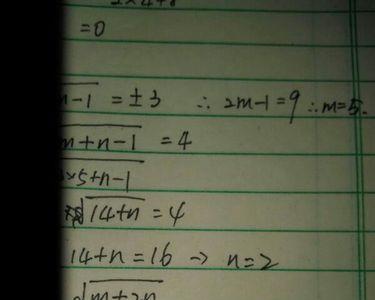 2×4+8
=0
m-1 = ±3 ∴ 2m-1=9 ∴ m=5.
m+n-1 = 4
×5+n-1
√14+n = 4
14+n=16 → n=2
√m+2n